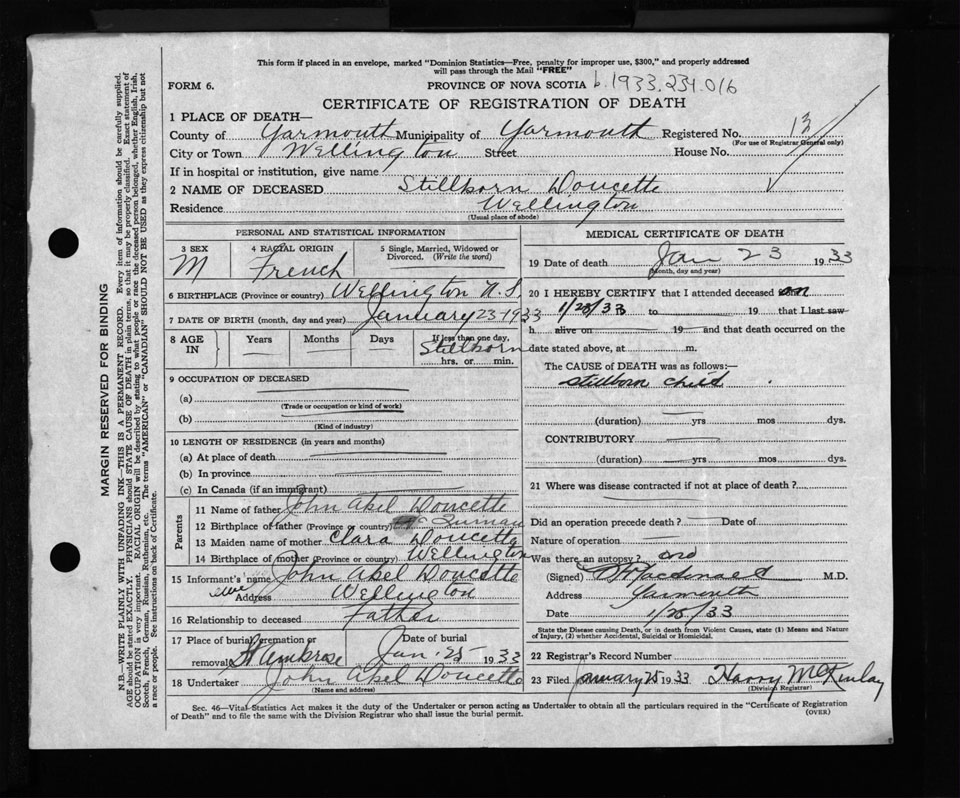 This form if placed in an envelope, marked "Dominion Statistics—Free, penalty for improper use, $300," and properly addressed
will pass through the Mail "FREE"
FORM 6.
PROVINCE OF NOVA SCOTIA b.1933.234.016
CERTIFICATE OF REGISTRATION OF DEATH
1 PLACE OF DEATH—
County of Yarmouth Municipality of Yarmouth Registered No. 13
(For use of Registrar General only)
City or Town Wellington Street House No.
If in hospital or institution, give name
2 NAME OF DECEASED Stillborn Doucette
Residence Wellington
(Usual place of abode)
PERSONAL AND STATISTICAL INFORMATION
3 SEX 4 RACIAL ORIGIN 5 Single, Married, Widowed or
Divorced. (Write the word)
M French
6 BIRTHPLACE (Province or country) Wellington N.S.
7 DATE OF BIRTH (month, day and year) January 23-1933
8 AGE IN Years Months Days If less than one day,
Stillborn
hrs. or min.
9 OCCUPATION OF DECEASED
(a)
(Trade or occupation or kind of work)
(b)
(Kind of industry)
10 LENGTH OF RESIDENCE (in years and months)
(a) At place of death
(b) In province
(c) In Canada (if an immigrant)
Parents
11 Name of father John Abel Doucette
12 Birthplace of father (Province or country)
13 Maiden name of mother Clara Doucette
14 Birthplace of mother (Province or country) Wellington
15 Informant's name John Abel Doucette
Address Wellington
16 Relationship to deceased Father
17 Place of burial, cremation or Date of burial
removal St Ambrose Jan 25 1933
18 Undertaker John Abel Doucette
(Name and address)
MEDICAL CERTIFICATE OF DEATH
19 Date of death Jan 23 1933
(Month, day and year)
20 I HEREBY CERTIFY that I attended deceased on
to 19 that I last saw
h alive on 19 and that death occurred on
date stated above, at m.
The CAUSE OF DEATH was as follows:—
stillborn child
(duration) yrs mos dys.
CONTRIBUTORY
(duration) yrs mos dys.
21 Where was disease contracted if not at place of death?
Did an operation precede death? Date of
Nature of operation
Was there an autopsy? no
(Signed) M.D.
Address Yarmouth
Date
State the Disease causing Death, or in death from Violent Causes, state (1) Means and Nature
of Injury, (2) whether Accidental, Suicidal or Homicidal.
22 Registrar's Record Number
23 Filed January 25 1933 Harry McKinlay
(Division Registrar)
Sec. 46—Vital Statistics Act makes it the duty of the Undertaker or person acting as Undertaker to obtain all the particulars required in the "Certificate of Registration
of Death" and to file the same with the Division Registrar who shall issue the burial permit. (OVER)
MARGIN RESERVED FOR BINDING
N.B.—WRITE PLAINLY WITH UNFADING INK—THIS IS A PERMANENT RECORD. Every item of information should be carefully supplied.
AGE should be stated EXACTLY. PHYSICIANS should STATE CAUSE OF DEATH in plain terms, so that it may be properly classified. Exact statement of
OCCUPATION is very important. RACIAL ORIGIN will be described by stating to what people or race the deceased person belonged, whether English, Irish,
Scotch, French, German, Russian, Ruthenian, etc. The terms "AMERICAN" or "CANADIAN" SHOULD NOT BE USED as they express citizenship but not
a race or people. See instructions on back of Certificate.